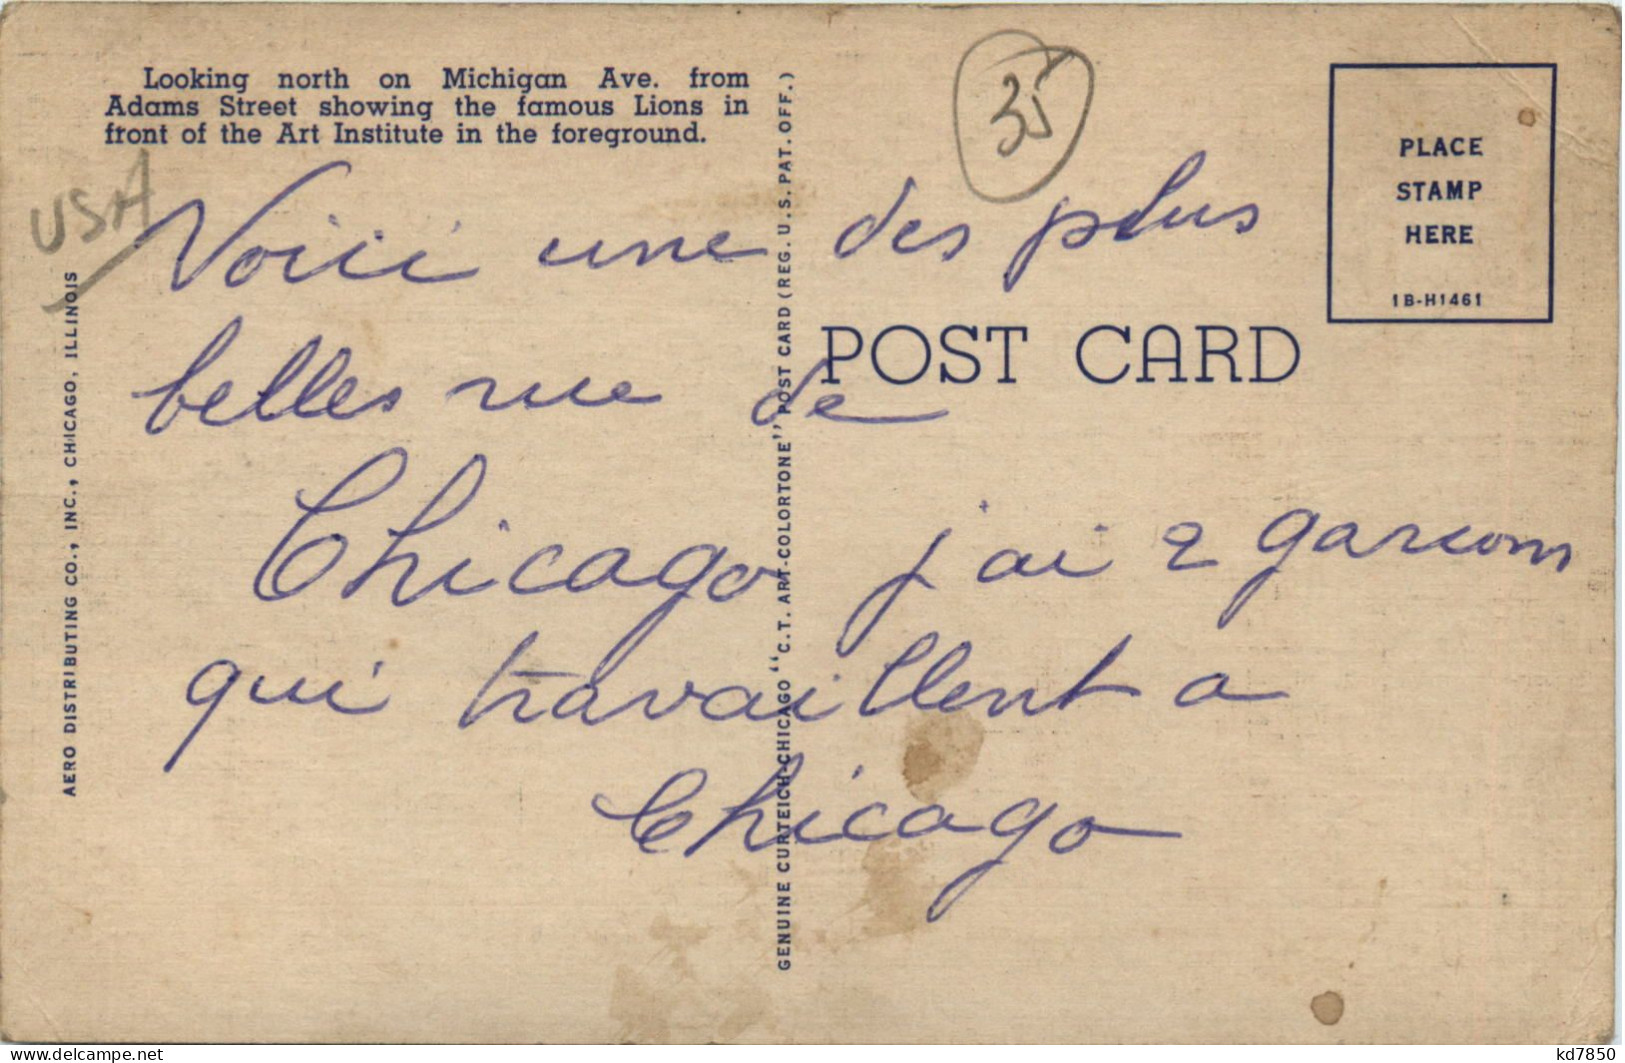 Looking north on Michigan Ave. from
Adams Street showing the famous Lions in
front of the Art Institute in the foreground.
35
PLACE
STAMP
HERE
1B-H1461
USA
POST CARD
Voici une des plus
belles rue de
Chicago j'ai 2 garcons
qui travaillent a
Chicago
AERO DISTRIBUTING CO., INC., CHICAGO, ILLINOIS
GENUINE CURTEICH-CHICAGO "C.T. ART-COLORTONE" POST CARD (REG. U.S. PAT. OFF.)
delcampe.net
kd7850